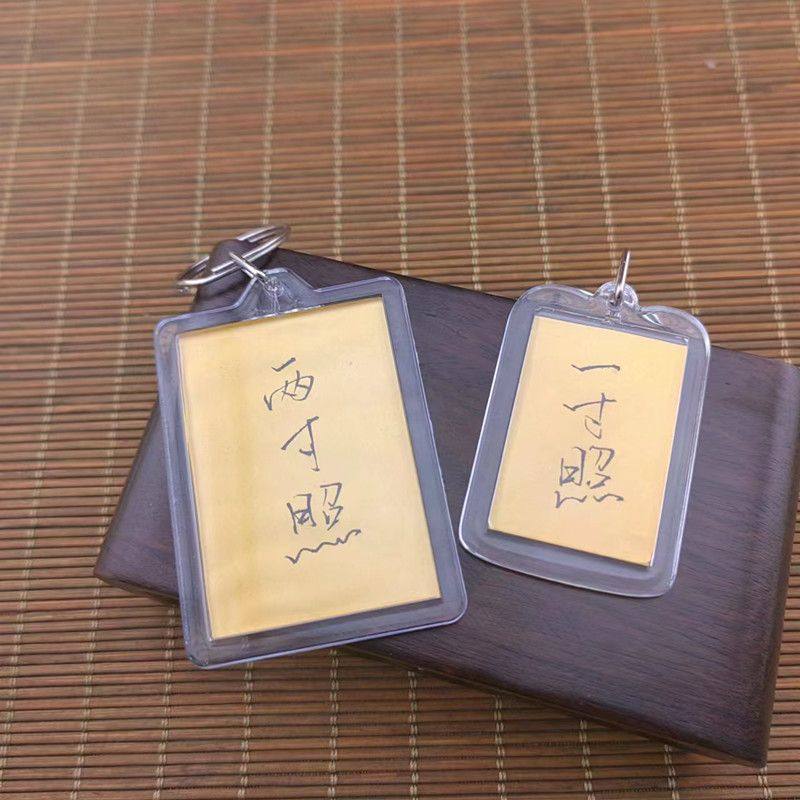 两寸照
一寸照